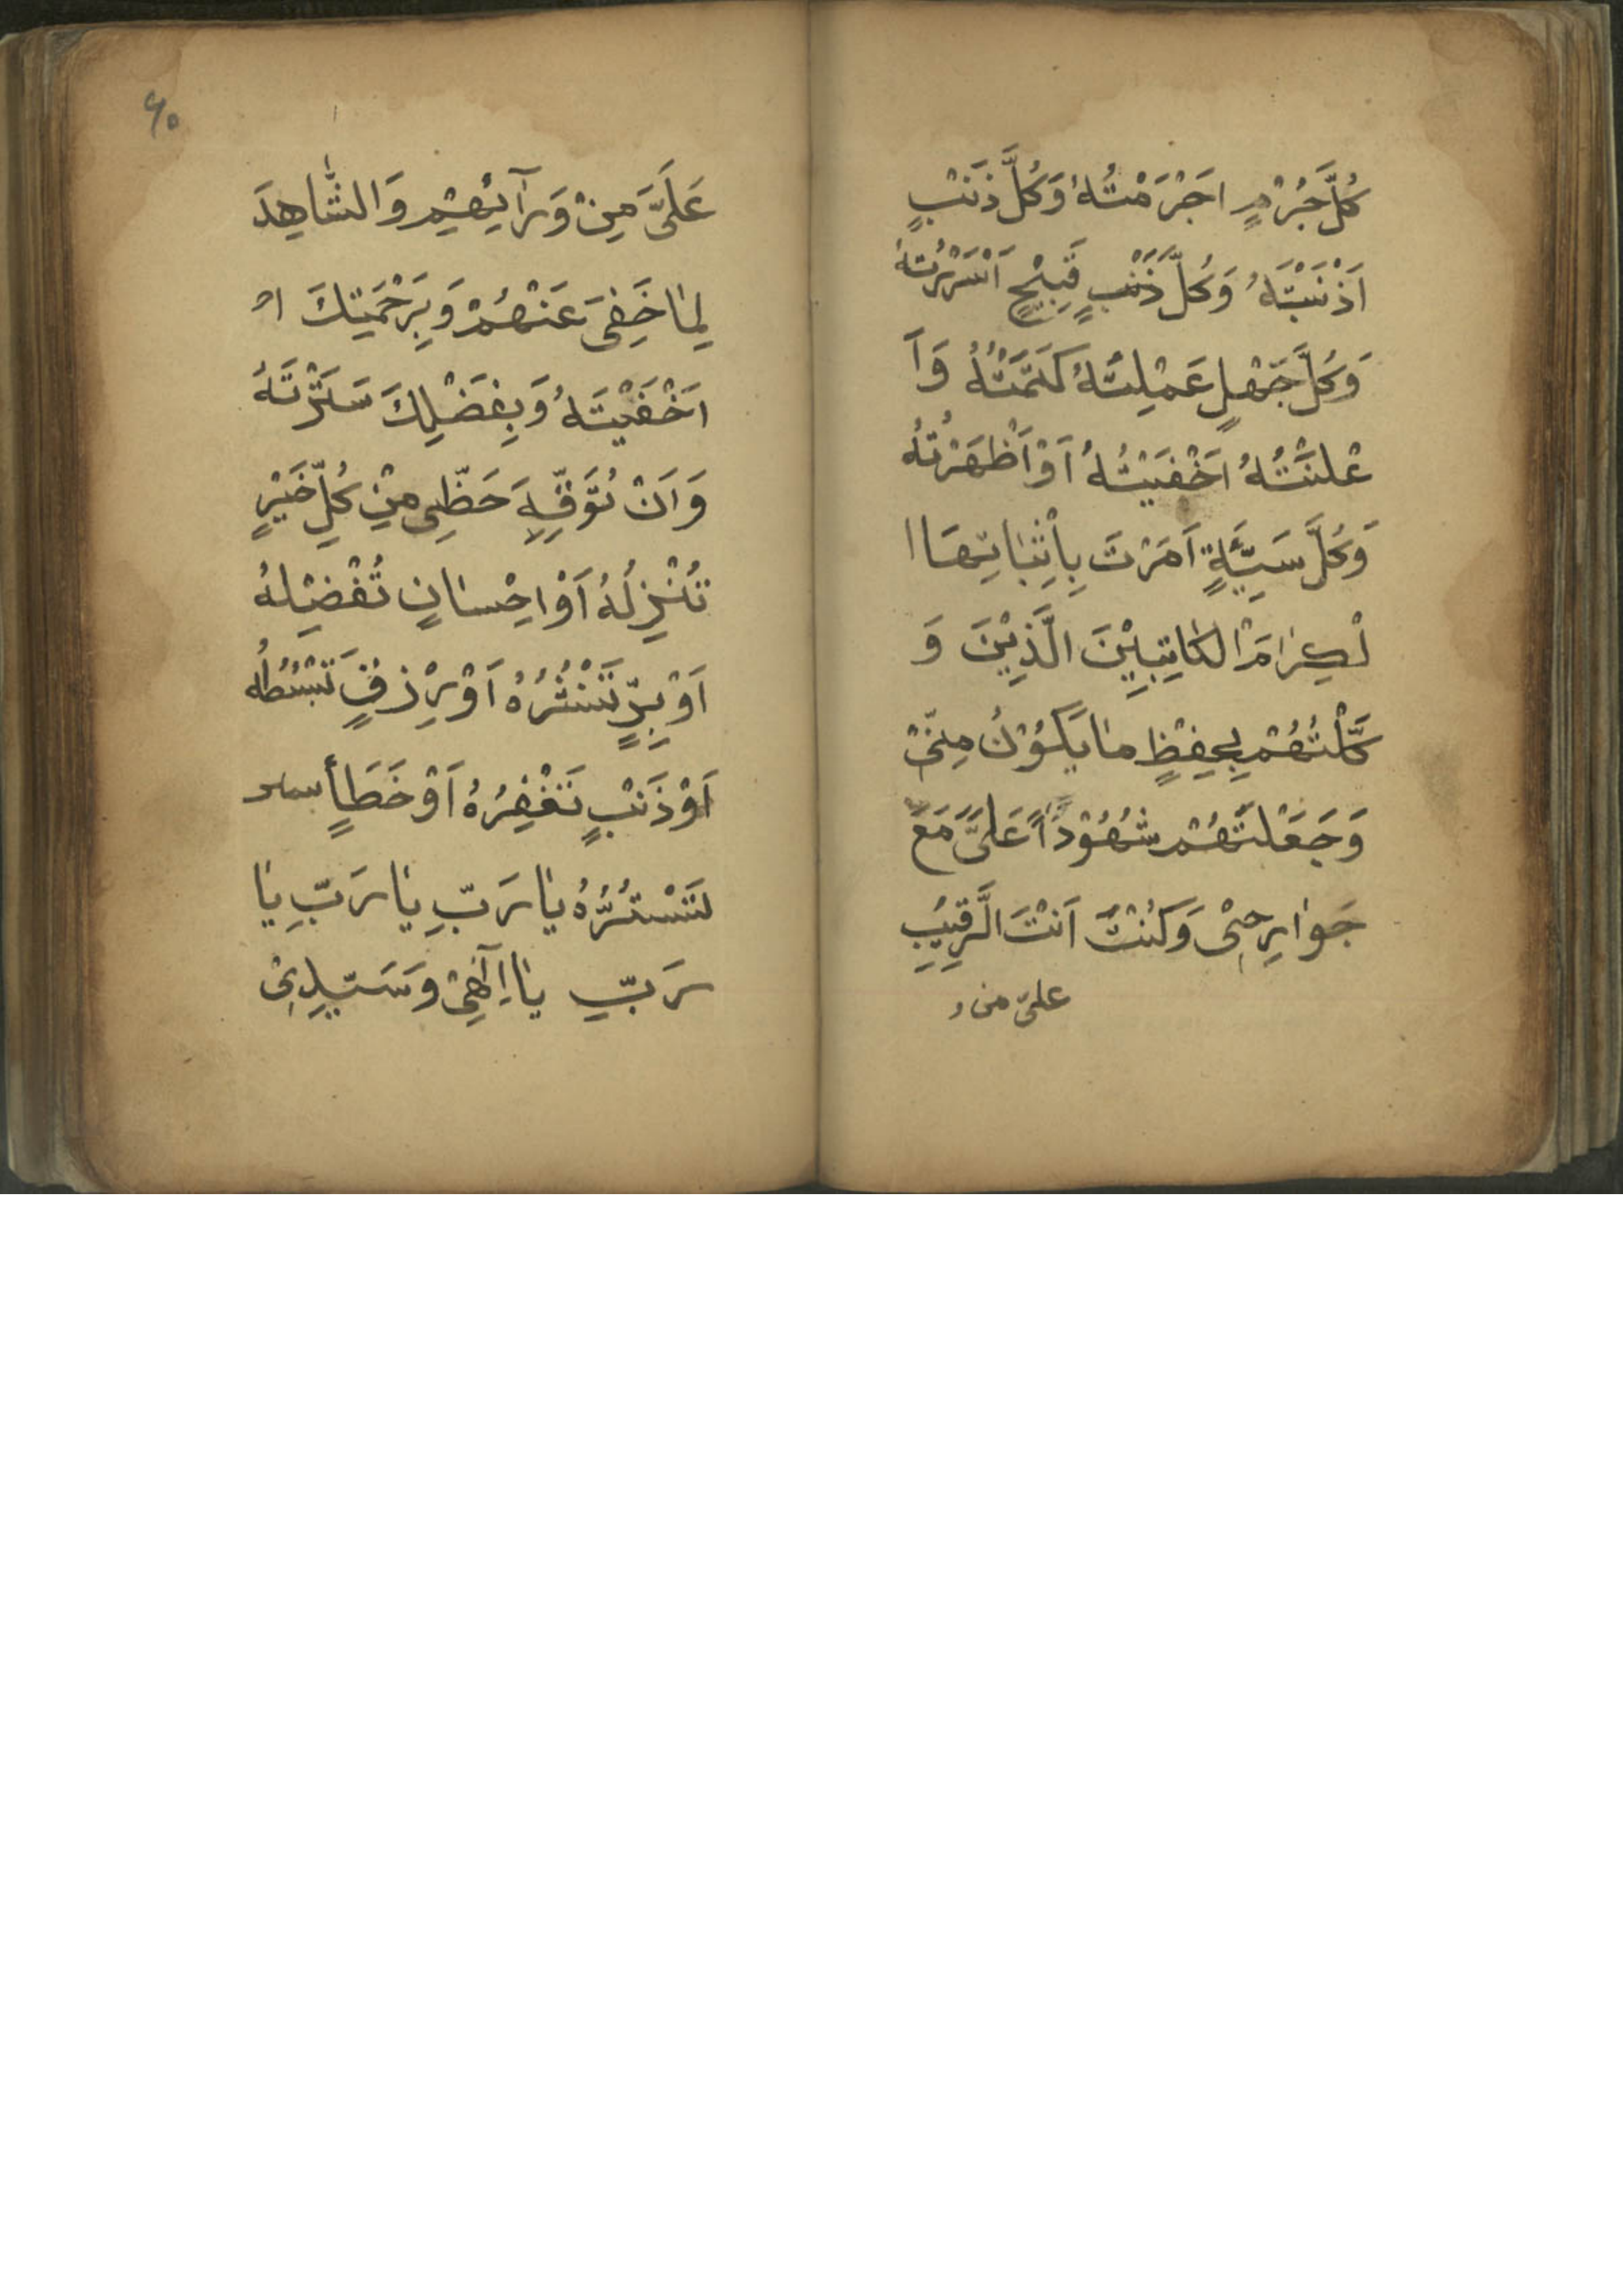 كُلَّ جُرْمٍ اَجْرَمْتُهُ وَكُلَّ ذَنْبٍ
اَذْنَبْتَهُ وَكُلَّ ذَنْبٍ قَبِيْحٍ اَسْرَرْتُهُ
وَكُلَّ جَهْلٍ عَمِلْتُهُ كَتَمْتُهُ وَاَ
عْلَنْتُهُ اَخْفَيْتُهُ اَوْ اَظْهَرْتُهُ
وَكُلَّ سَيِّئَةٍ اَمَرْتَ بِاِثْبَاتِهَا ا
لْكِرَامَ الْكَاتِبِيْنَ الَّذِيْنَ وَ
كَّلْتَهُمْ بِحِفْظٍ مَا يَكُوْنُ مِنِّيْ
وَجَعَلْتَهُمْ شُهُوْداً عَلَيَّ مَعَ
جَوَارِحِيْ وَكُنْتَ اَنْتَ الرَّقِيْبِ
عليّ من و
٦٠
عَلَيَّ مِنْ وَرَآئِهِمْ وَالشَّاهِدَ
لِمَا خَفِيَ عَنْهُمْ وَبِرَحْمَتِكَ
اَخْفَيْتَهُ وَبِفَضْلِكَ سَتَرْتَهُ
وَاَنْ تُوَفِّرَ حَظِّي مِنْ كُلِّ خَيْرٍ
تُنْزِلُهُ اَوْ اِحْسَانٍ تُفْضِلُهُ
اَوْ بِرٍّ تَنْشُرُهُ اَوْ رِزْقٍ تَبْسُطُهُ
اَوْ ذَنْبٍ تَغْفِرُهُ اَوْ خَطَأٍ
تَسْتُرُهُ يَا رَبِّ يَا رَبِّ يَا
رَبِّ يَا اِلٰهِيْ وَسَيِّدِيْ